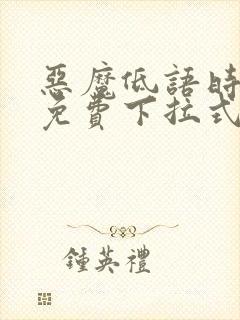 惡魔低語時
免費下拉式
鍾英禮